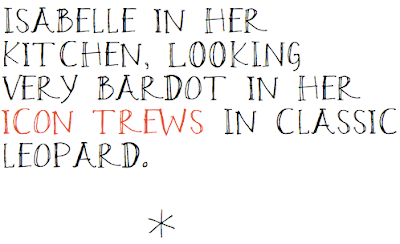 ISABELLE IN HER
KITCHEN, LOOKING
VERY BARDOT IN HER
ICON TREWS IN CLASSIC
LEOPARD.
*